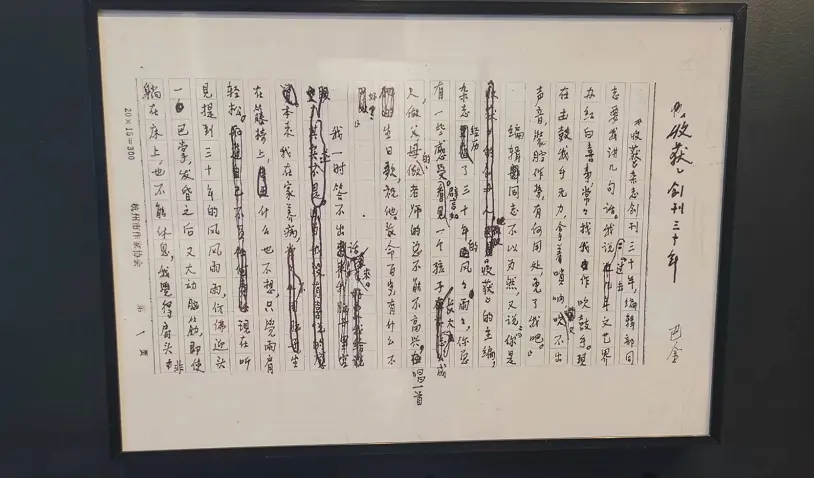 《收获》创刊三十年
巴金
《收获》杂志创刊三十年，编辑部同
志要我讲几句话。我说：过去几年文艺界
办红白喜事常常找我作吹鼓手。现
在击鼓我年元力，拿着唢呐又吹不出
声音，装腔作势，有何用处，免了我吧。
编辑同志不以为然，又说：“你是
《收获》的主编，
杂志经历了三十年的风风雨雨，你总
有一些感受。譬如看见一个孩子长大成
人，做父母的做老师的总不能不高兴。唱一首
生日歌，祝他长命百岁，有什么不
好？”
我一时答不出话来。
本来我在家养病，坐
在藤椅上，什么也不想，只觉两肩
轻松。现在听
见提到三十年的风风雨雨，仿佛迎头
一巴掌，发昏之后又大动脑筋，即使
躺在床上，也不能休息，我觉得肩头
20×15=300
杭州市作家协会
第 1 页